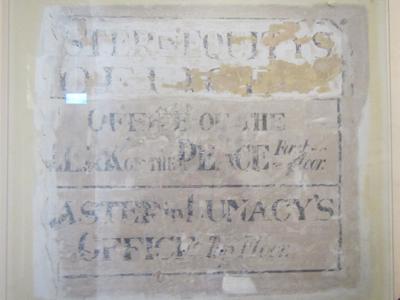 STER IN EQUITY'S
OFFICE
OFFICE OF THE
CLERK OF THE PEACE First Floor.
ASTER IN LUNACY'S
OFFICE Top Floor.